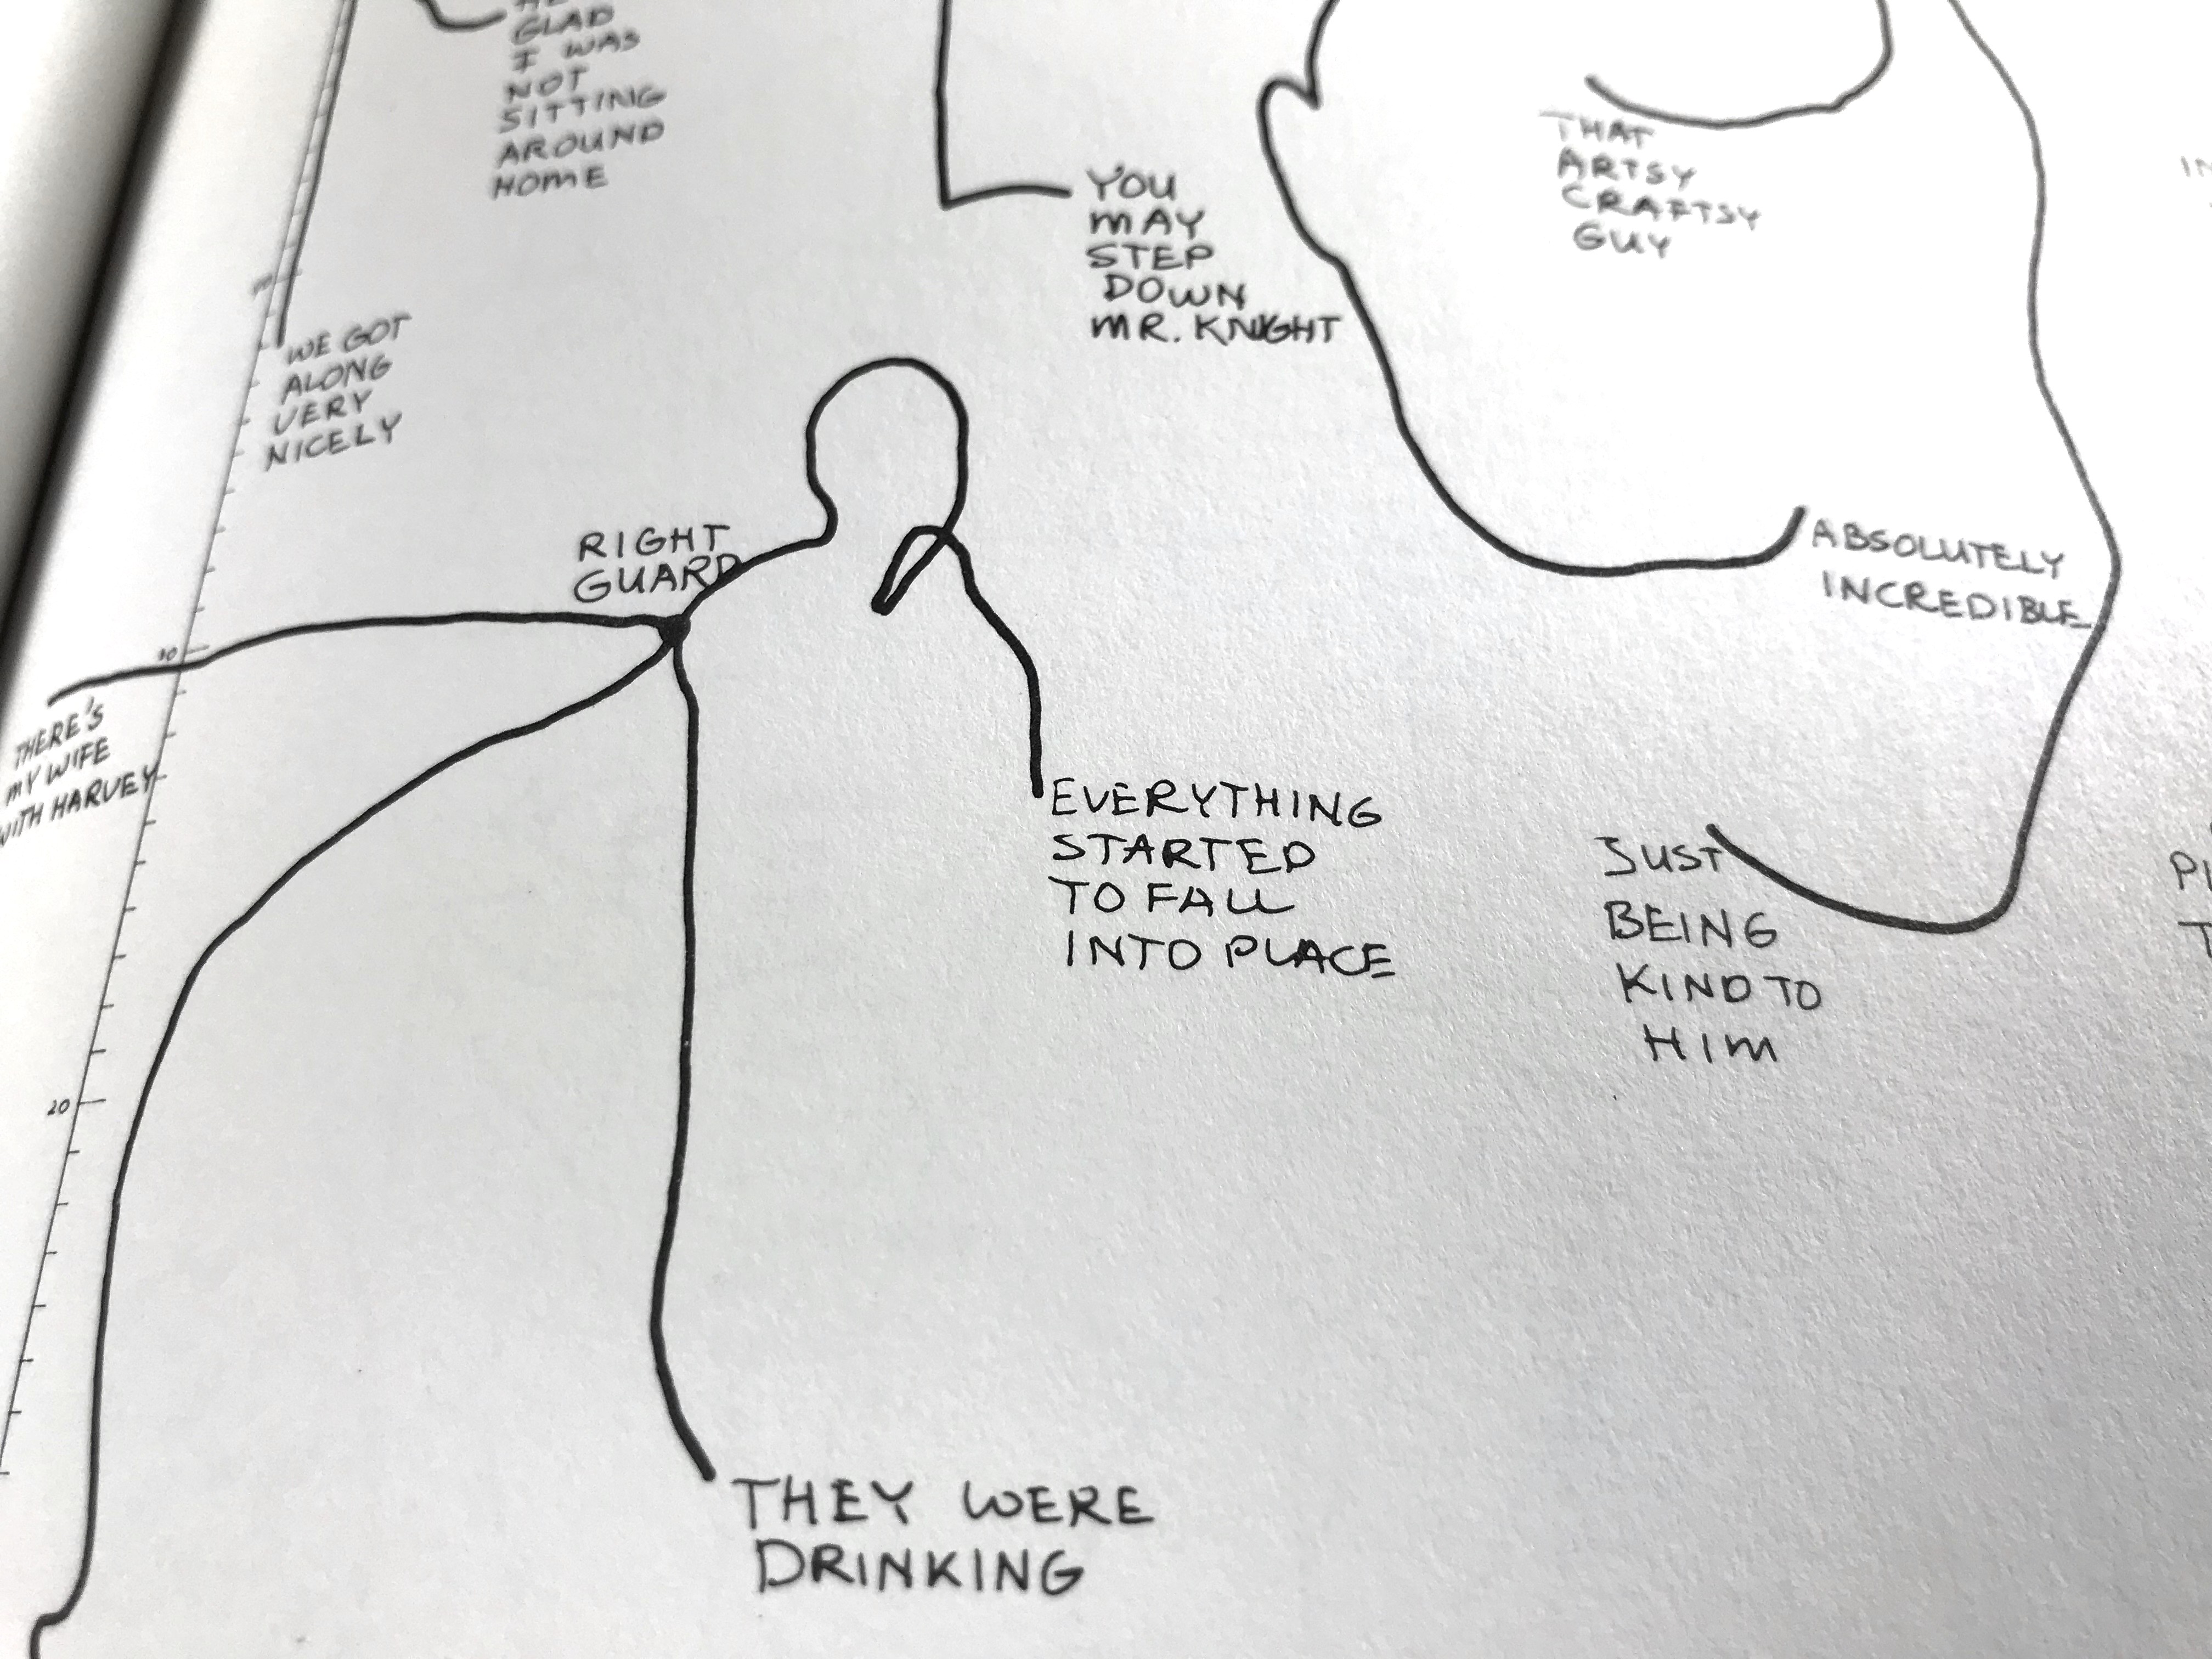 GLAD
I WAS
NOT
SITTING
AROUND
HOME
YOU
MAY
STEP
DOWN
MR. KNIGHT
THAT
ARTSY
CRAFTSY
GUY
WE GOT
ALONG
VERY
NICELY
RIGHT
GUARD
ABSOLUTELY
INCREDIBLE
10
THERE'S
MY WIFE
WITH HARVEY
EVERYTHING
STARTED
TO FALL
INTO PLACE
JUST
BEING
KIND TO
HIM
20
THEY WERE
DRINKING